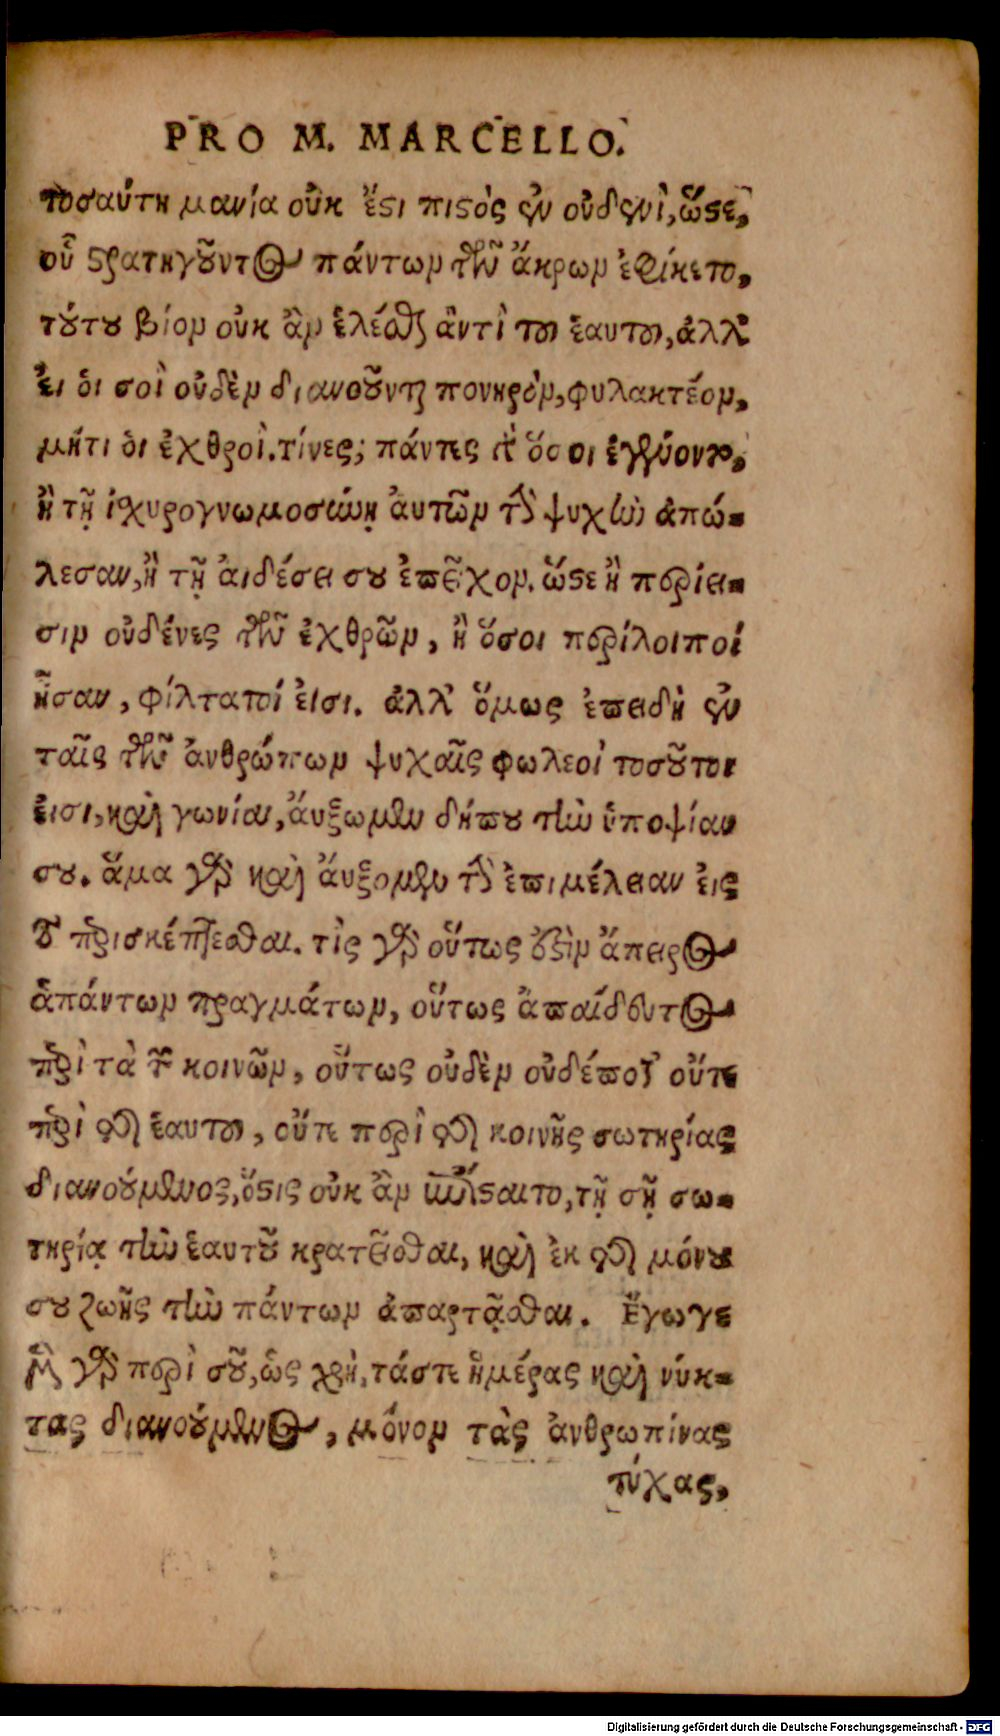 PRO M. MARCELLO.
τοσαύτη μανία οὐκ ἔστι πιστὸς ἐν οὐδενὶ, ὥστε,
οὗ στρατηγοῦντος πάντων τῶν ἄκρων ἐφίκετο,
τούτου βίον οὐκ ἂν ἕλέσθαι ἀντὶ τοῦ ἑαυτοῦ, ἀλλ'
εἰ οἱ σοὶ οὐδὲν διανοοῦνται πονηρὸν, φυλακτέον,
μήτι οἱ ἐχθροὶ. τίνες; πάντες γὰρ ὅσοι ἐγένοντο,
ἢ τῇ ἰσχυρογνωμοσύνῃ ἀυτῶν τὴν ψυχὴν ἀπώ-
λεσαν, ἢ τῇ ἀιδέσει σου ἐπεῖχον. ὥστε ἢ περίει-
σιν οὐδένες τῶν ἐχθρῶν, ἢ ὅσοι περίλοιποί
ἦσαν, φίλτατοί ἐισι. ἀλλ' ὅμως ἐπειδὴ ἐν
ταῖς τῶν ἀνθρώπων ψυχαῖς φωλεοὶ τοσοῦτοι
ἐισι, καὶ γωνίαι, ἄυξωμεν δήπου τὴν ὑποψίαν
σου. ἅμα γὰρ καὶ ἄυξομεν τὴν ἐπιμέλειαν ἐις
τὸ περισκέπτεσθαι. τὶς γὰρ οὕτως ἐστὶν ἄπειρος
ἁπάντων πραγμάτων, οὕτως ἀπαίδευτος
περὶ τὰ τῶν κοινῶν, οὕτως οὐδὲν οὐδέποτε οὔτε
περὶ τῆς ἑαυτοῦ, οὔτε περὶ τῆς κοινῆς σωτηρίας
διανοούμενος, ὅστις οὐκ ἂν ἐπίσταιτο, τῇ σῇ σω-
τηρίᾳ τὴν ἑαυτοῦ κρατεῖσθαι, καὶ ἐκ τῆς μόνου
σου ζωῆς τὴν πάντων ἀπαρτᾷσθαι. Ἔγωγε
μὲν γὰρ περὶ σοῦ, ὡς χρὴ, τάστε ἡμέρας καὶ νύκ-
τας διανοούμενος, μόνον τὰς ἀνθρωπίνας
τύχας,
Digitalisierung gefördert durch die Deutsche Forschungsgemeinschaft - DFG